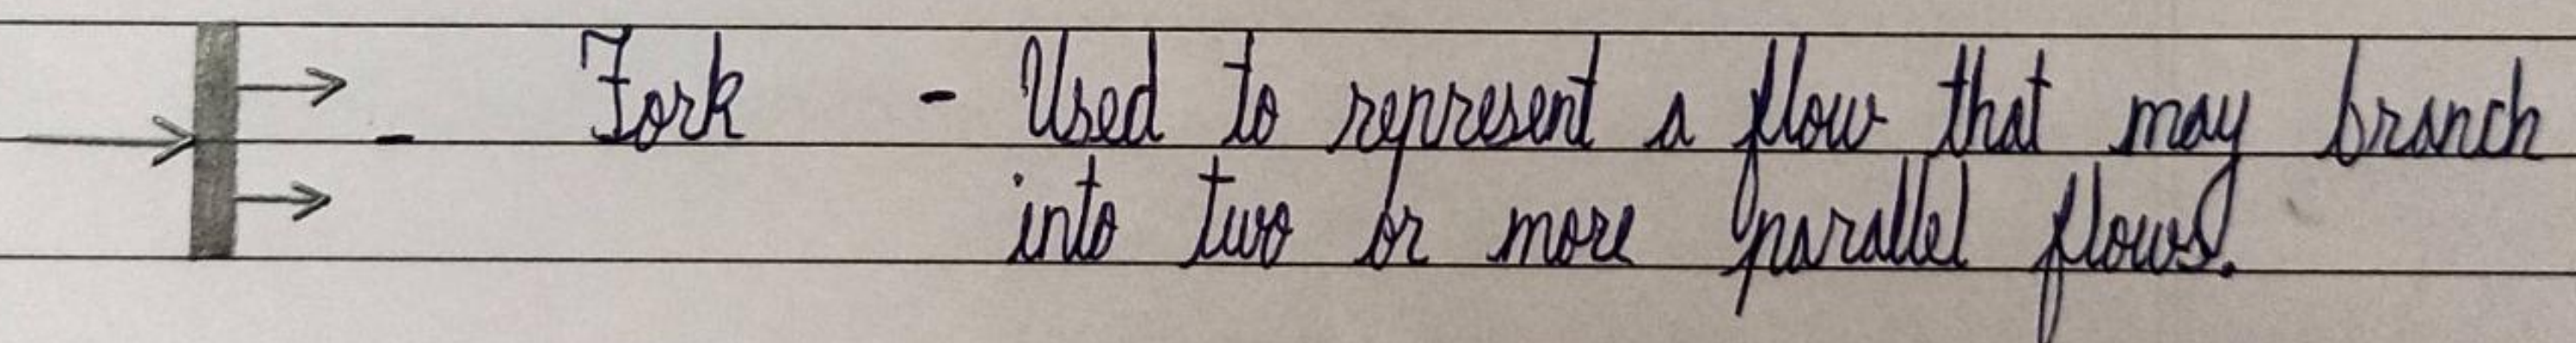 - Fork - Used to represent a flow that may branch
into two or more parallel flows.